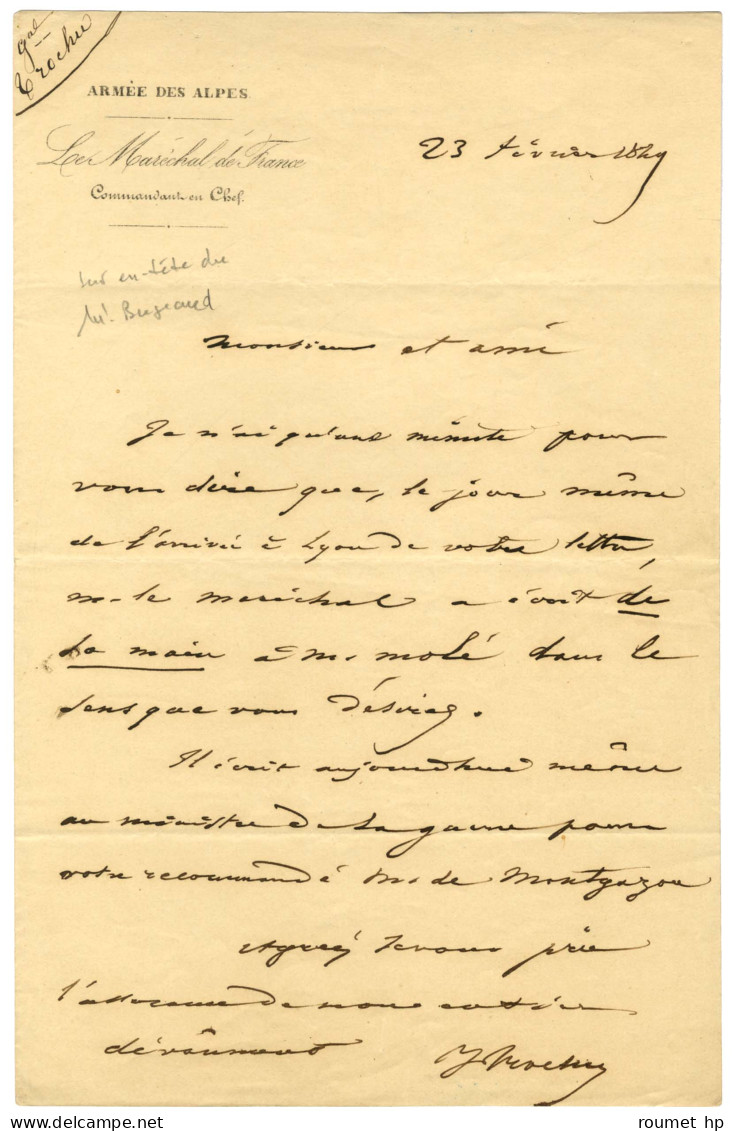 gal
Trochu
ARMÉE DES ALPES.
Le Maréchal de France
Commandant en Chef.
23 février 1849
sur en-tête du
Mal Bugeaud
Monsieur et ami
Je n'ai qu'une minute pour
vous dire que, le jour même
de l'arrivée à Lyon de votre lettre,
m. le maréchal a écrit de
sa main à M. Molé dans le
sens que vous désirez.
Il écrit aujourd'hui même
au ministre de la guerre pour
votre recommandé M. de Montgazon
Agréez je vous prie
l'assurance de mon entier
dévoûment
J. Trochu
roumet hp